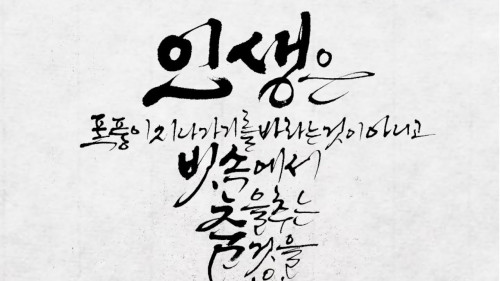 인생은
폭풍이 지나가기를 바라는 것이 아니고
빗속에서
춤을 추는
것을